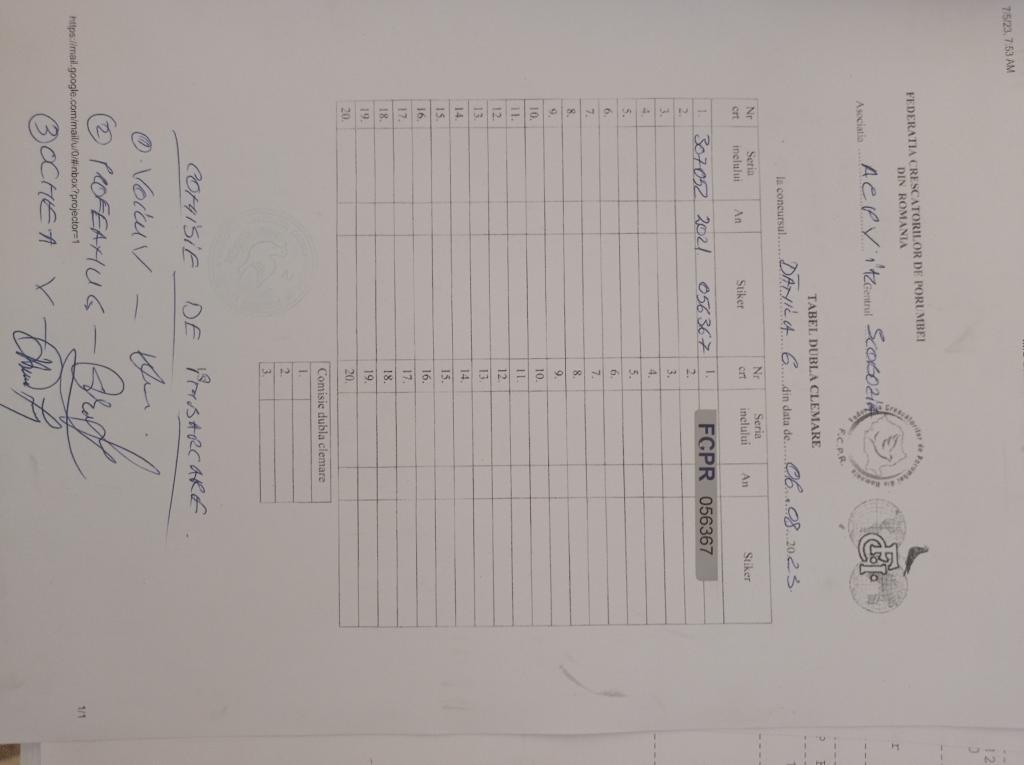 7/5/23, 7:53 AM
FEDERATIA CRESCATORILOR DE PORUMBEI
DIN ROMANIA
Asociatia ....A.C.P.V.....Centrul SLOBOZIA
Federatia Crescatorilor de Porumbei din Romania
F.C.P.R.
FCI
TABEL DUBLA CLEMARE
la concursul......DANILA 6......din data de......06..08..2023
Nr crt Seria inelului An Stiker Nr crt Seria inelului An Stiker
1. 307052 2021 056367 1. FCPR 056367
2. 2.
3. 3.
4. 4.
5. 5.
6. 6.
7. 7.
8. 8.
9. 9.
10. 10.
11. 11.
12. 12.
13. 13.
14. 14.
15. 15.
16. 16.
17. 17.
18. 18.
19. 19.
20. 20.
Comisie dubla clemare
1.
2.
3.
COMISIE DE
① VOICU V –
②
③ OCHEA V –
https://mail.google.com/mail/u/0/#inbox?projector=1
1/1